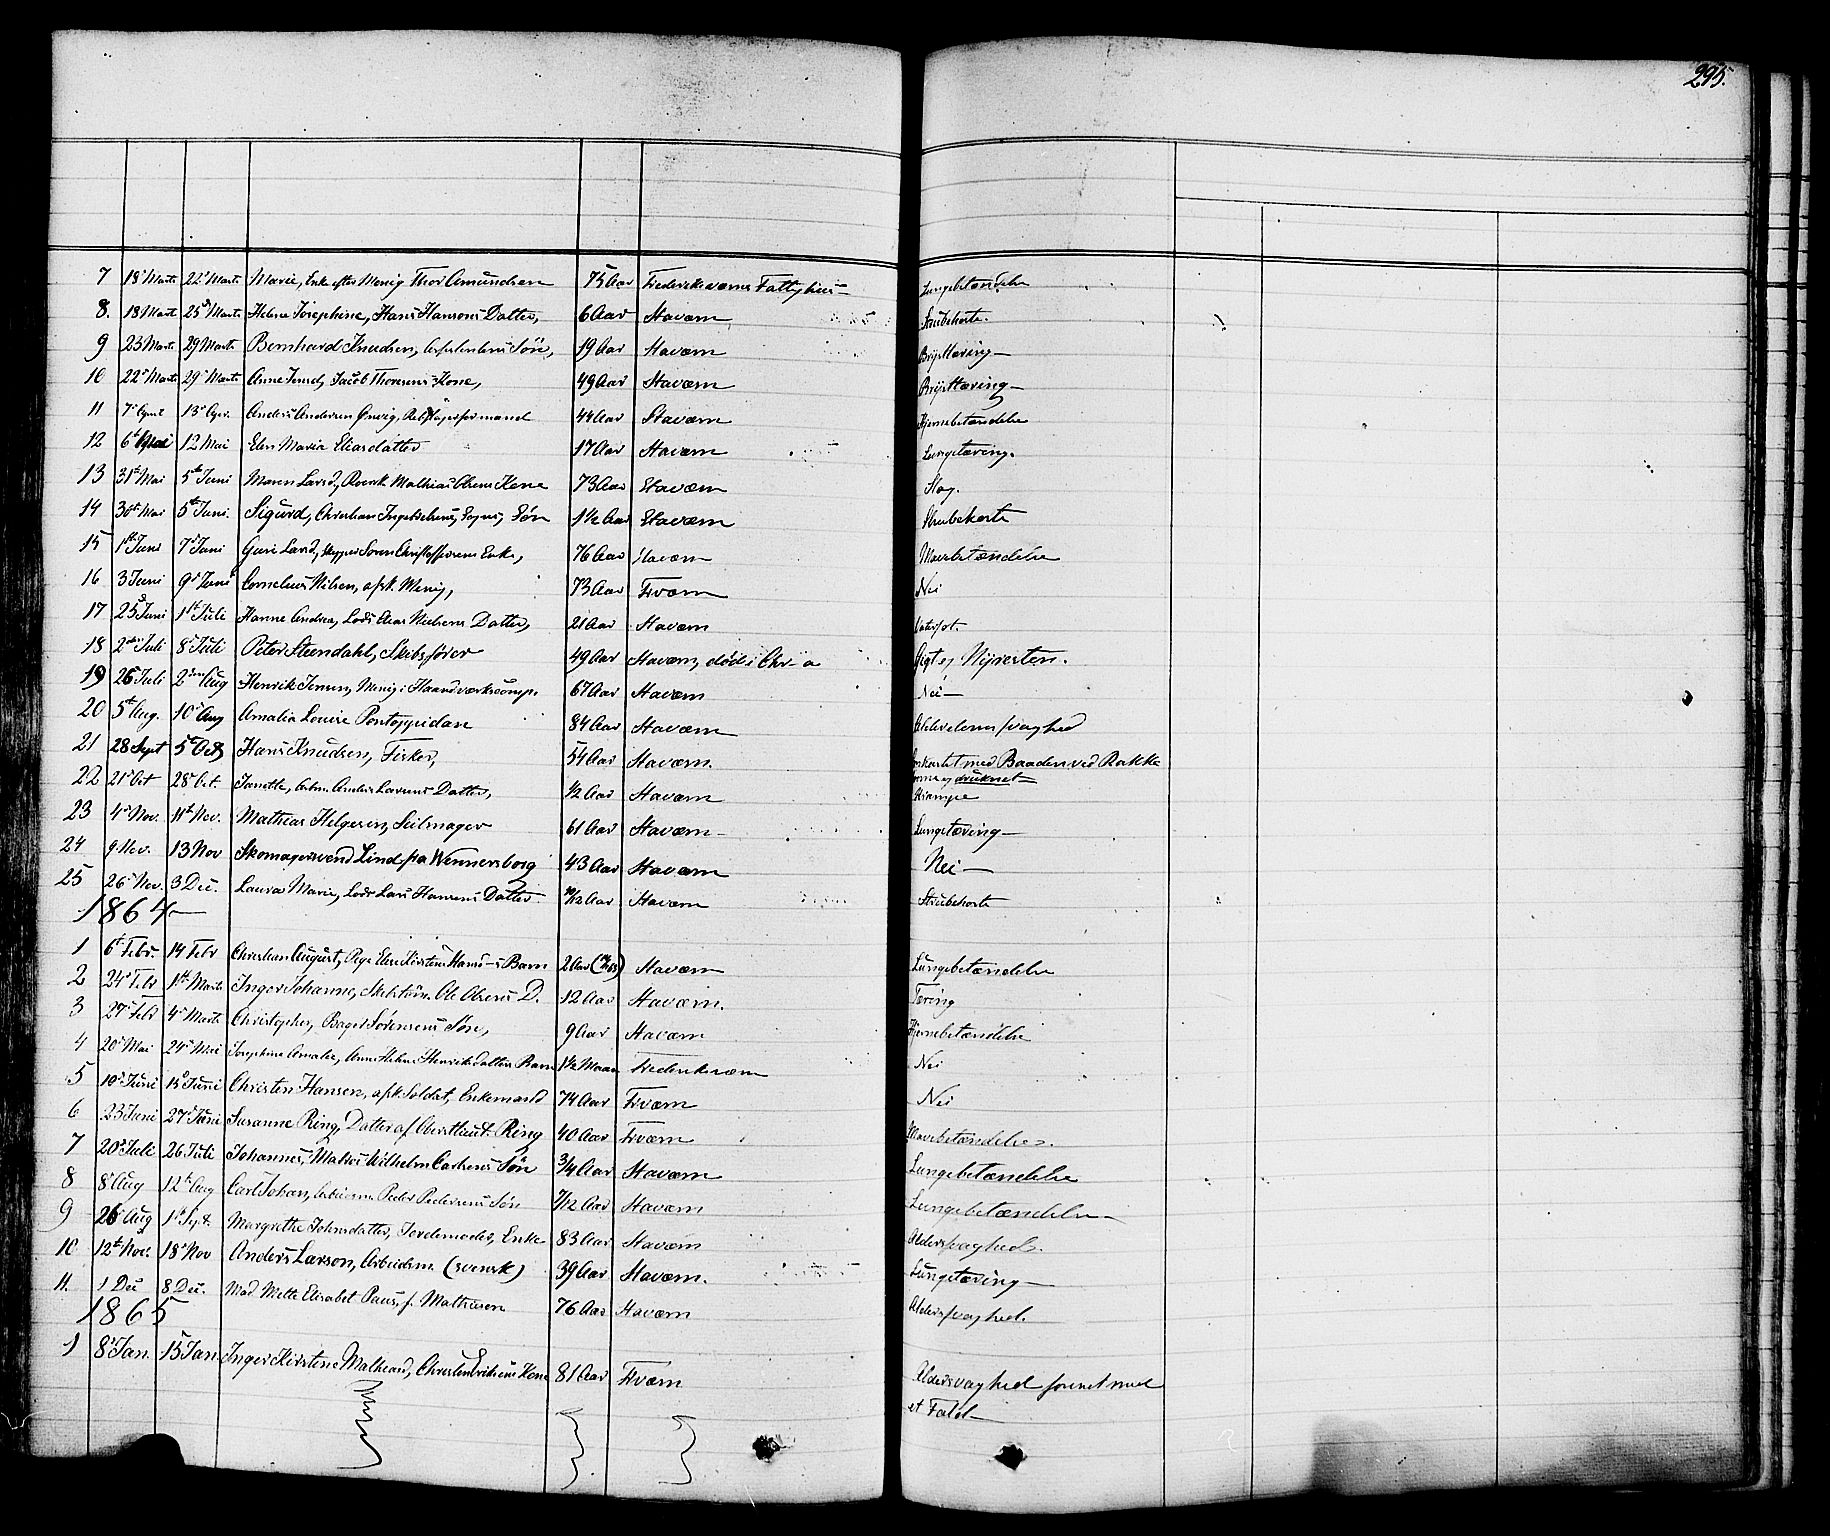 295.
7 18 Marts 22 Marts Marie, Enke efter Menig Thor Amundsen 75 Aar Frederiksværns Fattighus Lungebetændelse
8. 18 Marts 25 Marts Helene Josephine, Hans Hansens Datter, 6 Aar Staværn Strubehoste.
9 23 Marts 29 Marts Bernhard Knudsen, Søn, 19 Aar Staværn Brysttæring
10 22 Marts 29 Marts Anne Jensd, Jacob Thorsens Kone, 49 Aar Staværn Brysttæring
11 7 April 13 Apr. Anders Andersen 44 Aar Staværn Hjernebetændelse
12 6t Mai 12 Mai Elen Maria Eliasdatter 17 Aar Staværn Lungetæring.
13 31t Mai 5t Juni Maren Larsd, Mathias Olsens Kone 73 Aar Staværn Slag.
14 30t Mai 5t Juni. Sigurd, Christian Søn 1½ Aar Staværn Strubehoste
15 1st Juni 7 Juni Guri Larsd, Skipper Søren Christoffersens Enke, 76 Aar Staværn Mavebetændelse
16 3 Juni 9 Juni Cornelius Nilsen, afsk. Menig, 73 Aar Frværn Nei
17 25 Juni 1st Juli Hanne Andrea, Lods Nielsens Datter, 21 Aar Staværn Vatersot.
18 2 Juli 8 Juli Peter Steendahl, Skibsfører 49 Aar Staværn, død i Chr-a Gigt og
19 26 Juli 2 Aug Henrik Jensen, Menig i Haandværkscomp. 67 Aar Staværn Nei
20 5t Aug. 10 Aug Amalia Louise Pontoppidan 84 Aar Staværn
21 28 Sept 5t Oct Hans Knudsen, Fisker, 54 Aar Staværn. med Baaden ved Rakke
og druknet
22 21 Oct 28 Oct. Janette, Arbm. Anders Larsens Datter, ½ Aar Staværn Krampe
23 4 Nov. 11t Nov. Mathias Helgesen, Seilmager 61 Aar Staværn Lungetæring
24 9 Nov. 13 Nov Skomagersvend Lind fra Wennersborg 43 Aar Staværn Nei
25 26 Nov. 3 Dec. Laura Marie, Lods Lars Hansens Datter 10/12 Aar Staværn Strubehoste
1864
1 6t Febr. 14 Febr Christian August, Pige Else Kirstine Barn 2 Aar Staværn Lungebetændelse
2 24 Febr 1st Marts Inger Johanne, Skibstøm. Ole Olsens D. 12 Aar Staværn. Tæring
3 27 Febr 4 Marts Christopher, Bager Sørensens Søn, 9 Aar Staværn Hjernebetændelse
4 20 Mai 24 Mai Josephine Amalie, Anne Helene Henriksdatters Barn 1½ Maan Frederiksværn Nei
5 10 Juni 15 Juni Christen Hansen, afsk. Soldat, Enkemand 74 Aar Frværn Nei
6 23 Juni 27 Juni Susanne Ring, Datter af Oberstlieut. Ring 40 Aar Frværn Mavebetændelse.
7 20 Juli 26 Juli Johannes, Matros Wilhelm Carlsens Søn ¾ Aar Staværn Lungebetændelse
8 8 Aug 12t Aug Carl Johan, Arbeidsm. Peder Pedersens Søn 7/12 Aar Staværn Lungebetændelse
9 26 Aug 1st Sept. Margrethe Johnsdatter, Jordemoder, Enke 83 Aar Staværn Alderssvaghed.
10 12t Nov. 18 Nov Anders Larson, Arbeidsm. (svensk) 39 Aar Staværn. Lungetæring
11. 1 Dec 8 Dec. Mad. Mette Elisabet Paus, f. Mathiesen 76 Aar Staværn Alderssvaghed.
1865
1 8 Jan. 15 Jan. Inger Kirstine Christen Eriksens Kone 81 Aar Frværn Alderssvaghed forenet med
et Fald